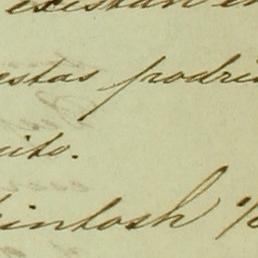 existan en
estas podri
uito.
kintosh %